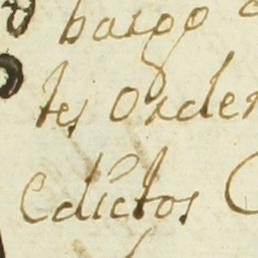 bargo
tes orden
Edictos